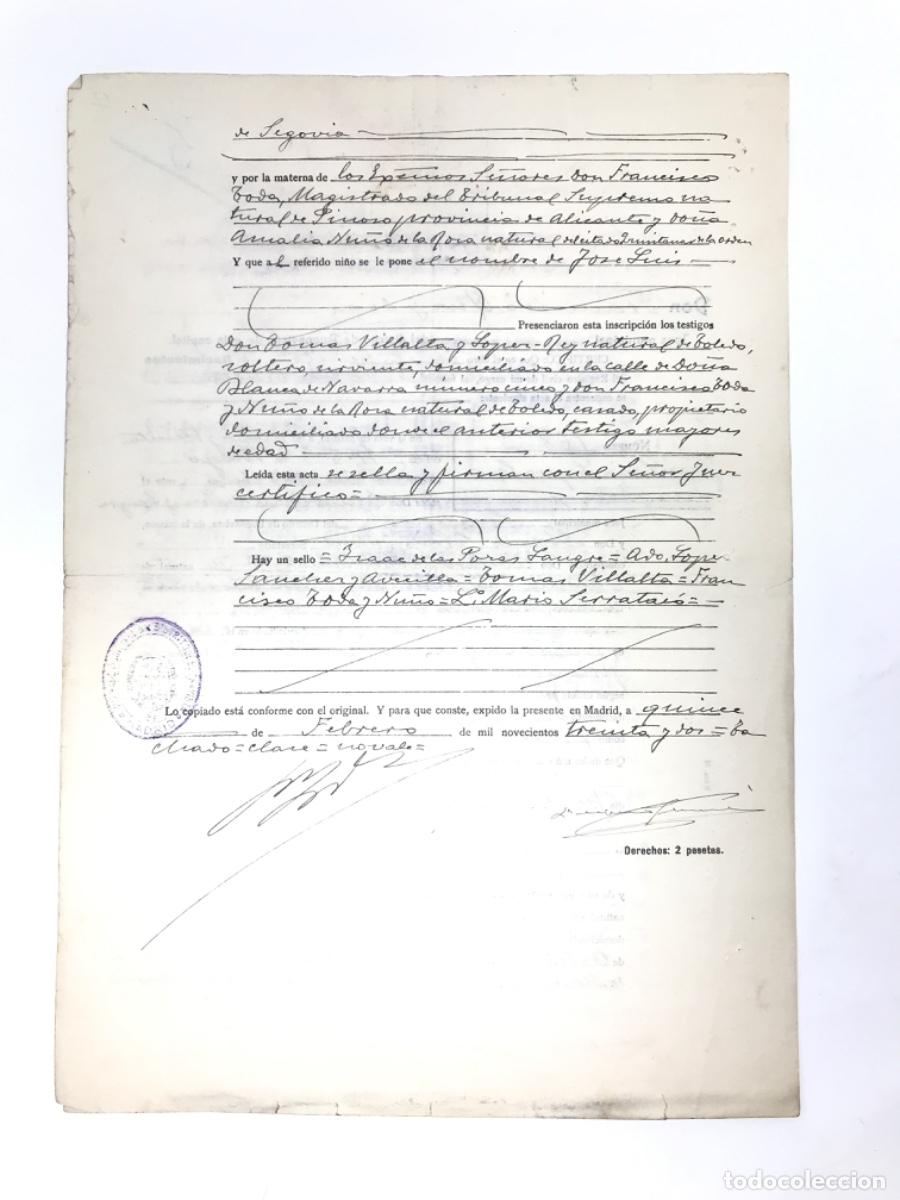 de Segovia
y por la materna de los Exemos Señores Don Francisco
Toda, Magistrado del Tribunal Supremo na
tural de Pinoso provincia de Alicante y Doña
Amalia Nuño de la Rosa natural del citado Quintanar de la Orden
Y que al referido niño se le pone el nombre de Jose Luis
Presenciaron esta inscripción los testigos
Don Tomas Villalta y Lopez-Rey natural de Toledo,
soltero, sirviente, domiciliado en la calle de Doña
Blanca de Navarra número cinco y don Francisco Toda
y Nuño de la Rosa natural de Toledo, casado, propietario
domiciliado donde el anterior testigo mayores
de edad
Leída esta acta se sella y firman con el Señor Juez
certifico =
Hay un sello = Isaac de las Pozas Langre = Ado. Lopez
Sanchez y Avecilla = Tomas Villalta = Fran
cisco Toda y Nuño = Lº Mario Serratacó =
Lo copiado está conforme con el original. Y para que conste, expido la presente en Madrid, a quince
de Febrero de mil novecientos treinta y dos = Ta
chado = clase = no vale =
Derechos: 2 pesetas.
todocoleccion